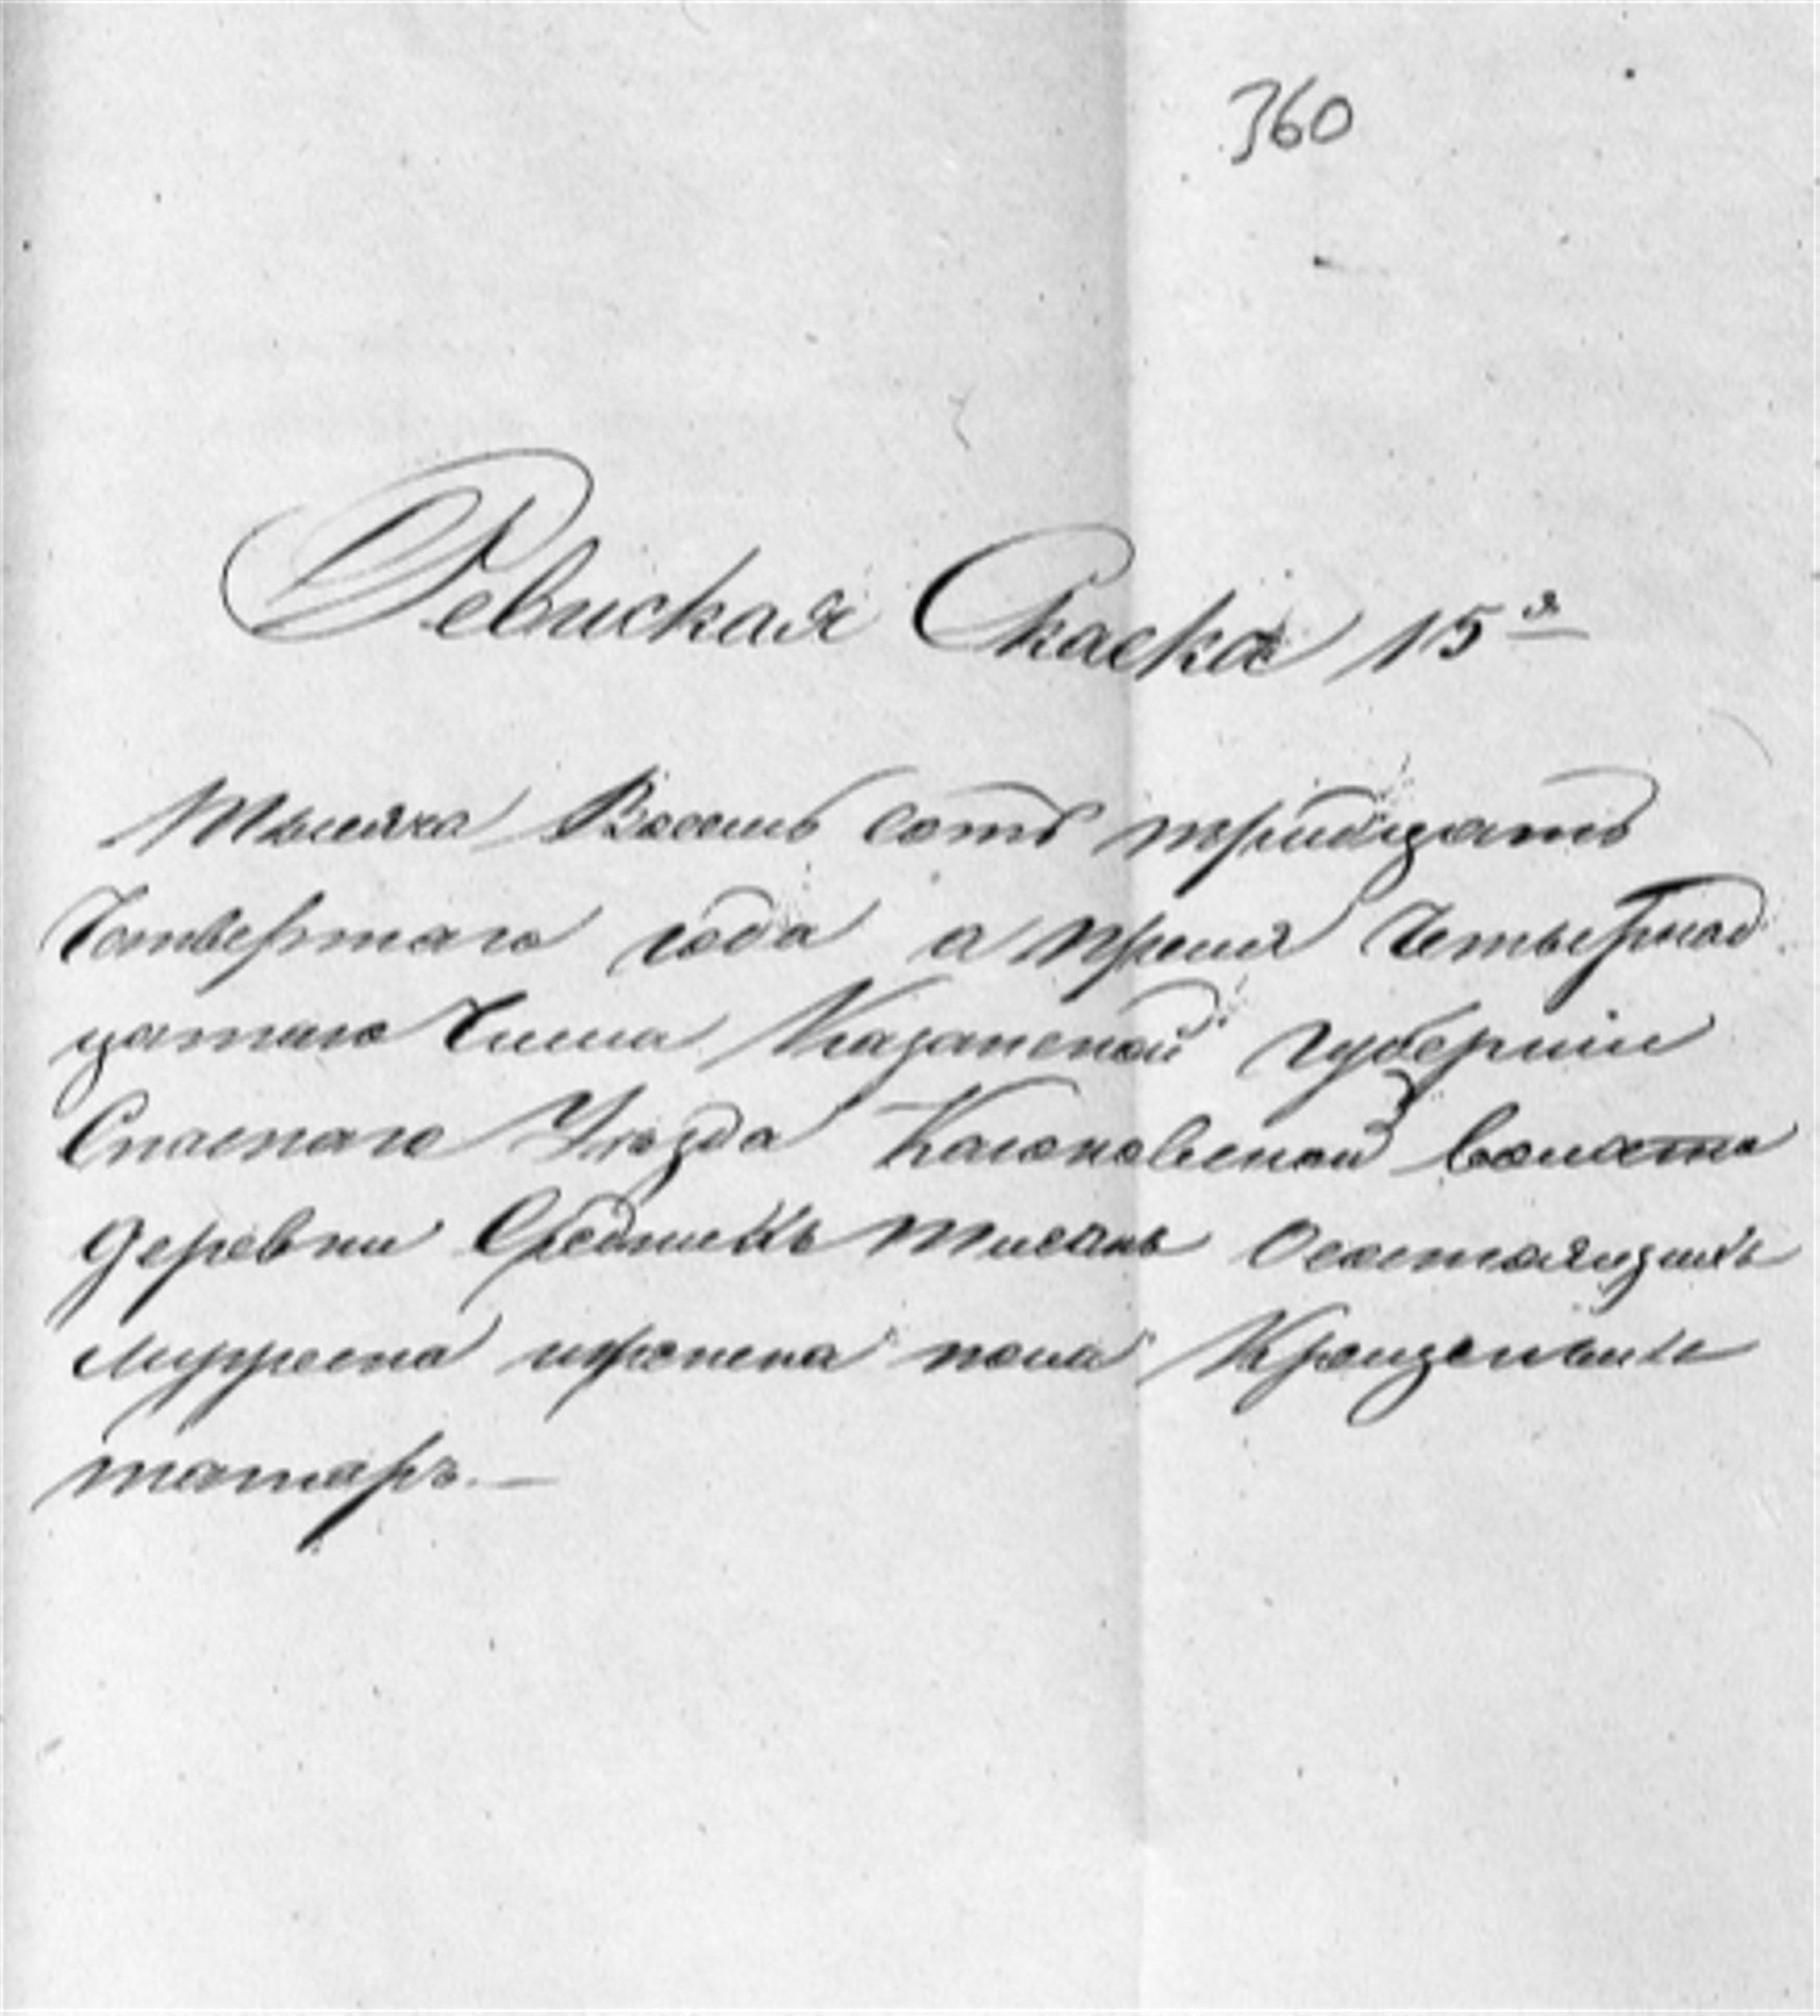 360
Ревиская Скаска 15я
Тысяча Восемь сотъ тридцать
Четвертаго года апреля Четырнад
цатаго Числа Казанской губерніи
Спаскаго Уезда волости
деревни Среднихъ Тиганъ Осостоящихъ
мужеска иженска пола
татаръ.—